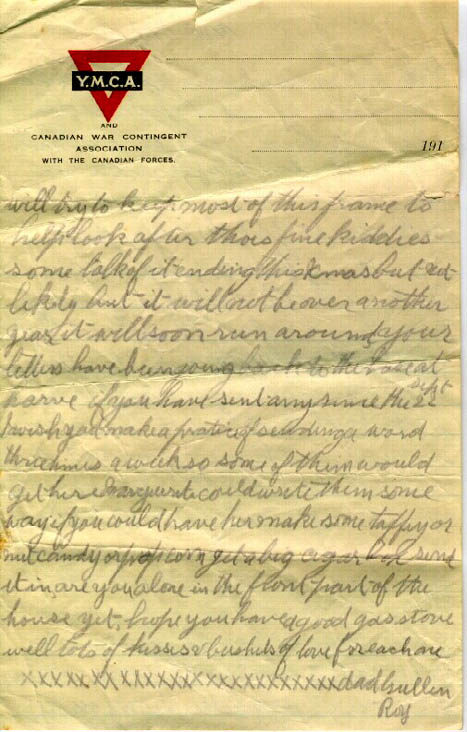 Y.M.C.A.
AND
CANADIAN WAR CONTINGENT
ASSOCIATION
WITH THE CANADIAN FORCES.
191
will try to keep most of this frame to
help look after thois fine kiddies
some talk of it ending this Xmas but not
likely but it will not be over another
year it will soon run around your
letters have been going back to the base at
harve if you have sent any since the 2 sept
I wish you make a pratice of sending a word
three times a week so some of them would
get here Marguirite could write them some
way if you could have her make some taffy or
nut candy or pop corn get a big cigar box send
it in are you alone in the front part of the
house yet, hope you have a good gas stove
well lots of kisses & bushels of love for each one
xxxxxxxxxxxxxxxxxxxxxxxxxxx dad
Roy